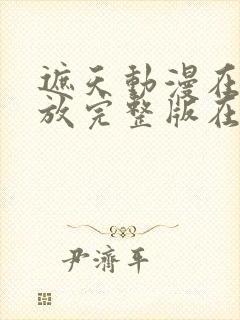 遮天動漫在
放完整版在
尹濟平